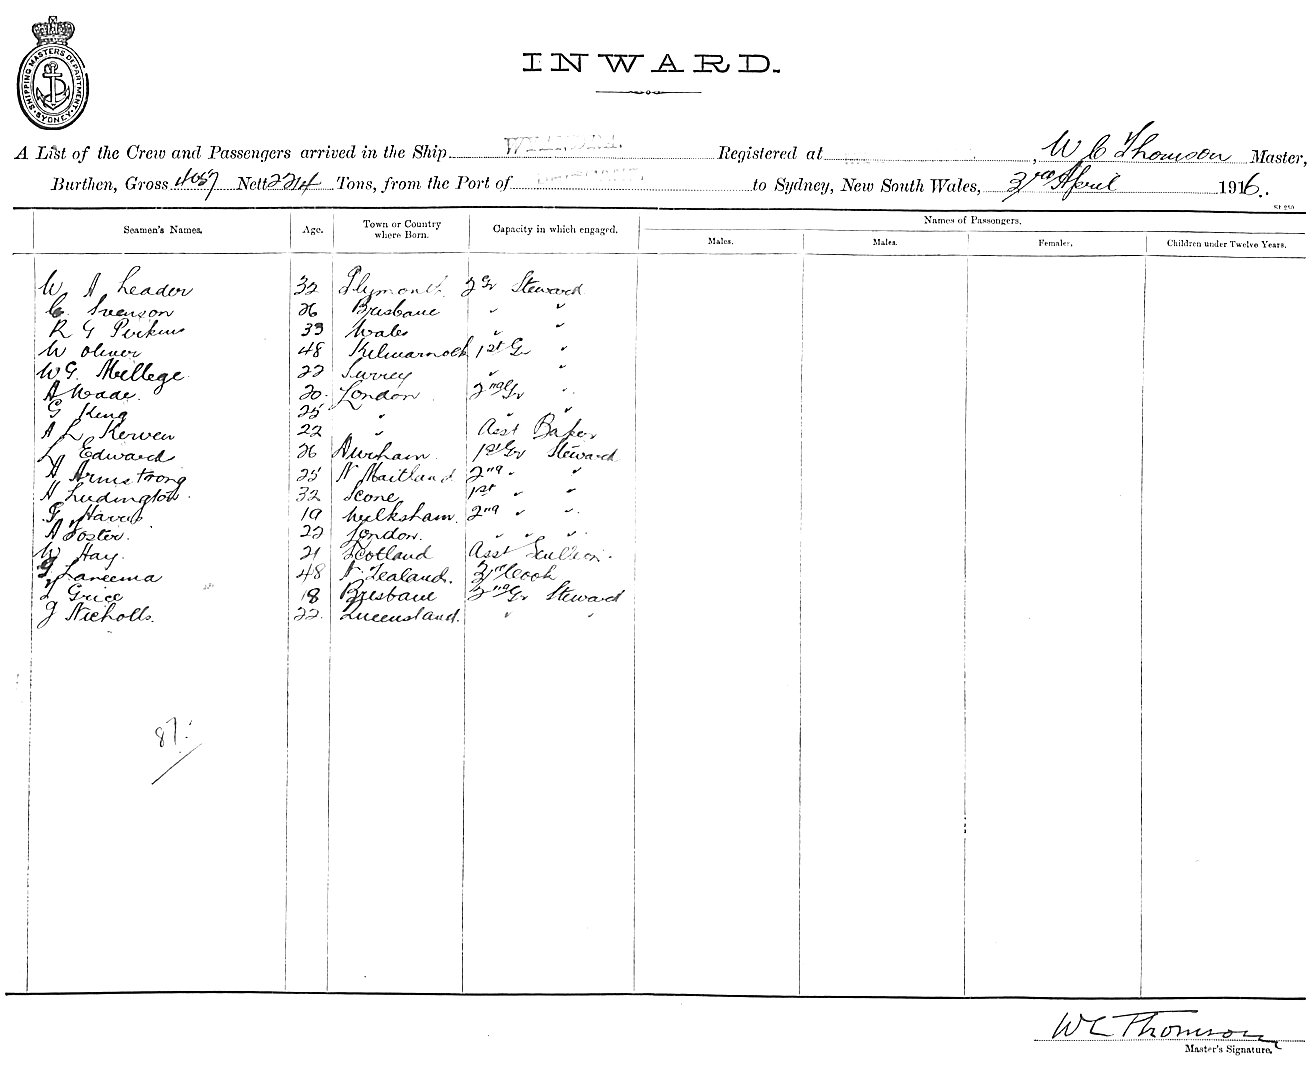 SHIPPING MASTERS DEPARTMENT SYDNEY
INWARD.
A List of the Crew and Passengers arrived in the Ship WYANDRA. Registered at , W C Thomson Master,
Burthen, Gross 4057 Nett 2214 Tons, from the Port of to Sydney, New South Wales, 3rd April 1916.
Seamen's Names. Age. Town or Country where Born. Capacity in which engaged. Names of Passengers.
Males. Males. Females. Children under Twelve Years.
W A Leader 32 Plymouth 2 Gr Steward
C. Svenson 26 Brisbane " "
R G Perkins 33 Wales " "
W Oliver 48 Kilmarnock 1st Gr "
W G. Millege 22 Surrey " "
A Wade. 20. London 2nd Gr "
G King 25 " " "
A L Kerwen 22 " Asst Baker
L Edward 26 Durham. 1st Gr Steward
A Armstrong 25 N Maitland 2nd " "
A Ludington 32 Scone 1st " "
F Harris 19 Melksham. 2nd " "
A Foster. 22 London. " " "
W Hay. 21 Scotland Asst Scullion.
48 N. Zealand. 3rd Cook
Grice 18 Brisbane 2nd Gr Steward
J Nicholls. 22. Queensland. " "
87
W C Thomson
Master's Signature.